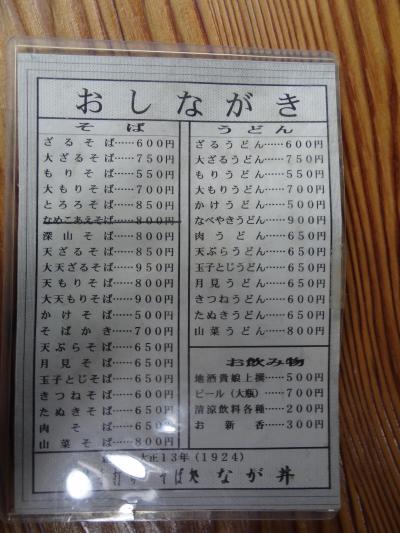 おしながき
そば
ざるそば……600円
大ざるそば……750円
もりそば……550円
大もりそば……700円
とろろそば……850円
なめこあえそば……800円
深山そば……800円
天ざるそば……850円
大天ざるそば……950円
天もりそば……800円
大天もりそば……900円
かけそば……500円
そばかき……700円
天ぷらそば……650円
月見そば……650円
玉子とじそば……650円
きつねそば……600円
たぬきそば……650円
肉そば……650円
山菜そば……800円
うどん
ざるうどん……600円
大ざるうどん……750円
もりうどん……550円
大もりうどん……700円
かけうどん……500円
なべやきうどん……900円
肉うどん……650円
天ぷらうどん……650円
玉子とじうどん……650円
月見うどん……650円
きつねうどん……600円
たぬきうどん……650円
山菜うどん……800円
お飲み物
地酒貴娘上撰……500円
ビール(大瓶)……700円
清涼飲料各種……200円
お新香……300円
大正13年(1924)
そば処 なが井